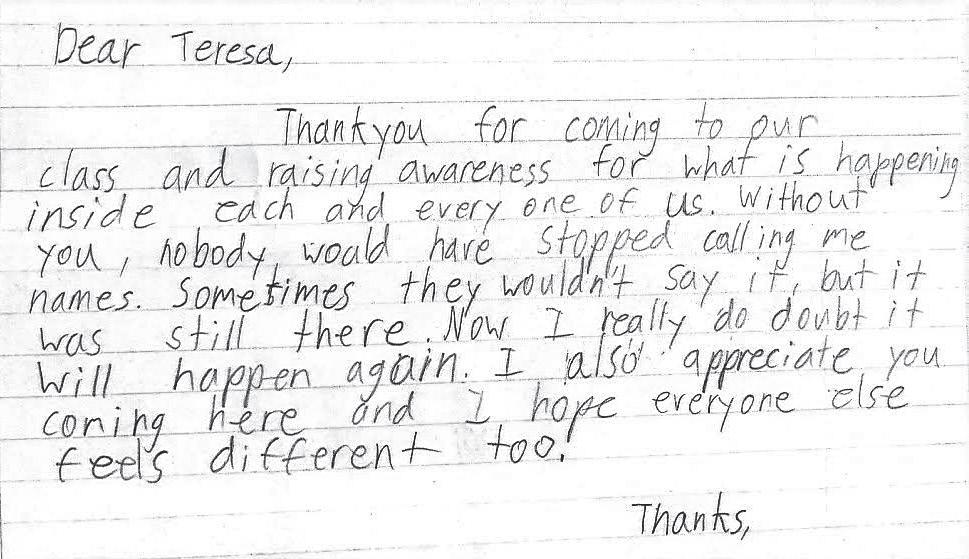 Dear Teresa,
Thankyou for coming to our
class and raising awareness for what is happening
inside each and every one of us. Without
you, nobody would have stopped calling me
names. Sometimes they wouldn't say it, but it
was still there. Now I really do doubt it
will happen again. I also appreciate you
coming here and I hope everyone else
feels different too!
Thanks,